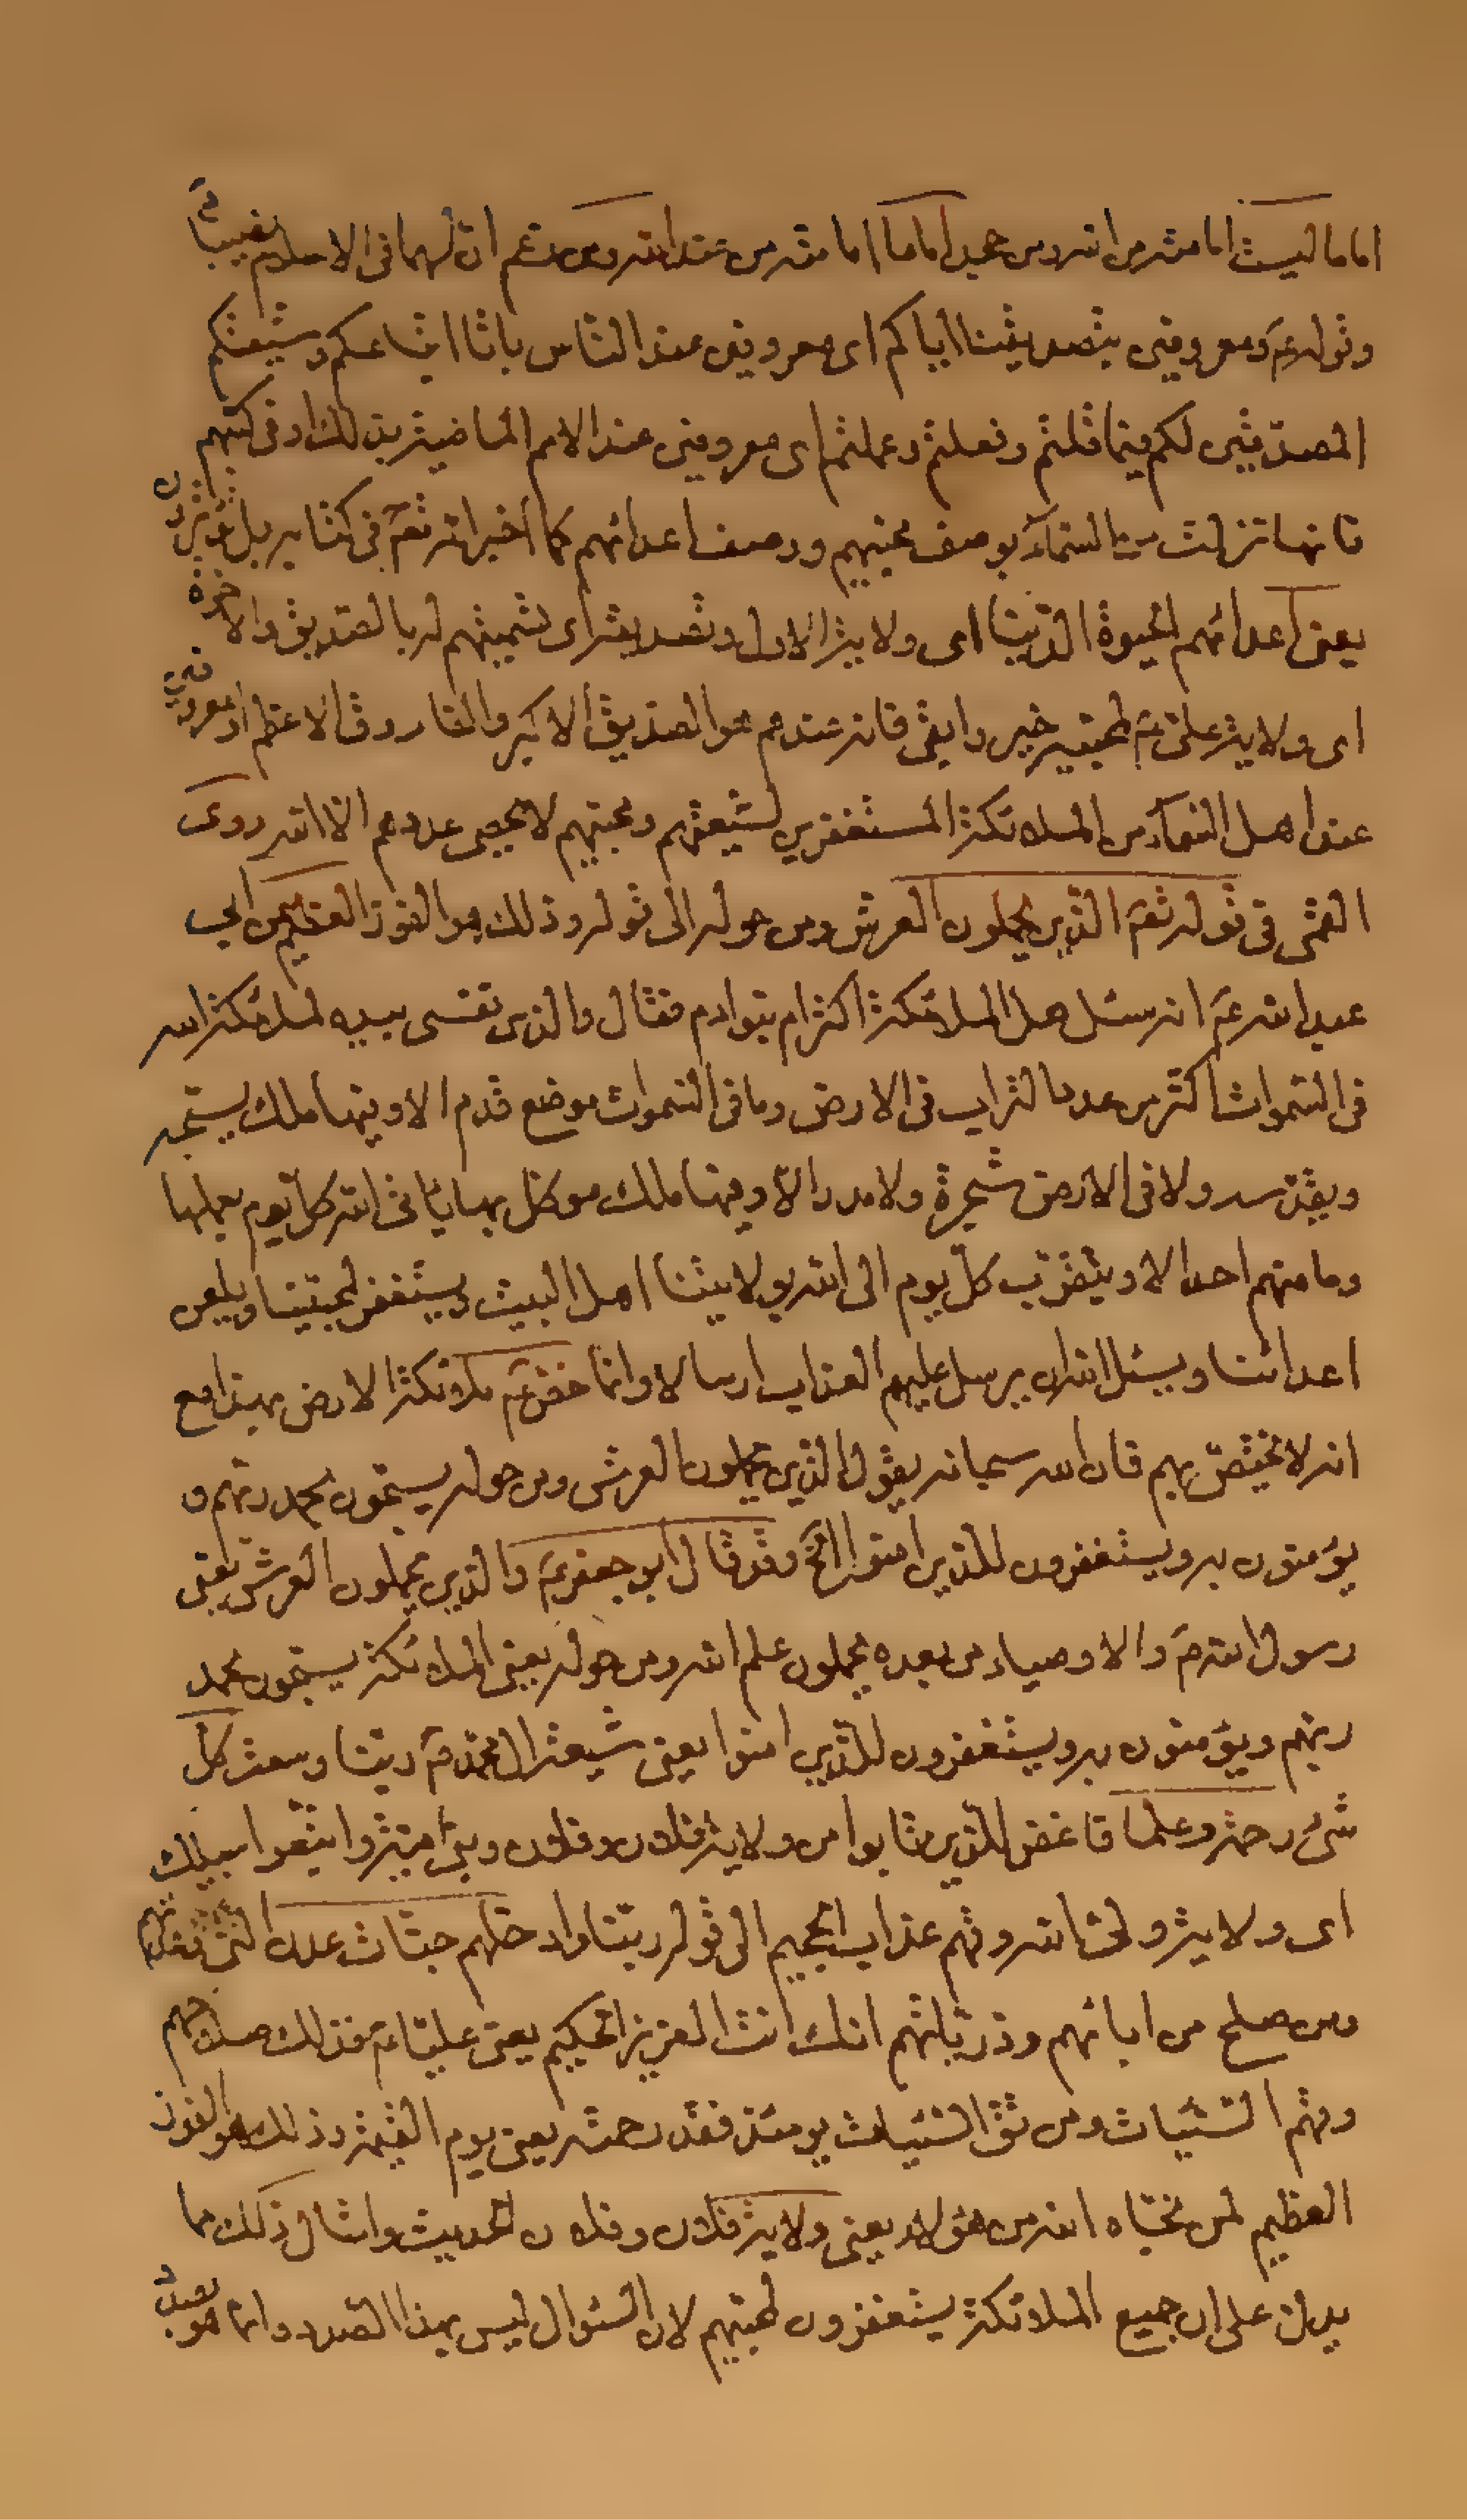 اماما ليست امامته من الله ومن جحد اماما امامته من عند الله ومن زعم ان لهما فى الاسلام نصيبا
وقوله ع ومعروفين بتصديقنا اياكم اى معروفين عند الناس بانا اتباعكم وشيعتكم
المصدقين لكم فيما قلتم وفعلتم وعملتم اى معروفين عند الامم الماضية بذلك او فى كتبهم
فانها نزلت من السمآء بوصف محبيهم ووصف اعدائهم كما اخبر الله تعم فى كتابه بل تؤثرون
يعنى اعدائهم الحيوة الدنيا اى ولاية الاول وتصديقه اى تسميتهم له بالصديق والاخرة
اى ولاية على ع لمحبيه خير وابقى فانه عندهم هو الصديق الاكبر والفاروق الاعظم او معروفين
عند اهل السمآء من الملائكة المستغفرين لشيعتهم ومحبيهم لا يحصى عددهم الا الله روى
القمى فى قوله تعم الذين يحملون العرش ومن حوله الى قوله وذلك هو الفوز العظيم عن ابى
عبد الله ع انه سئل هل الملائكة اكثر ام بنو ادم فقال والذى نفسى بيده لملائكة الله
فى السموات اكثر من عدد التراب فى الارض وما فى السموات موضع قدم الا وفيها ملك يسبحه
ويقدسه ولا فى الارض شجرة ولا مدر الا وفيها ملك موكل بها ياتى الله كل يوم بعملها
وما منهم احد الا ويتقرب كل يوم الى الله بولايتنا اهل البيت ويستغفر لمحبينا ويلعن
اعدائنا ويسئل الله ان يرسل عليهم العذاب ارسالا وانما خص ع ملائكة الارض بهذا مع
انه لا يختص بهم فان الله سبحانه يقول الذين يحملون العرش ومن حوله يسبحون بحمد ربهم و
يؤمنون به ويستغفرون للذين امنوا الخ وقد قال ابو جعفر ع والذين يحملون العرش يعنى
رسول الله ص والاوصياء من بعده يحملون علم الله ومن حوله يعنى الملائكة يسبحون بحمد
ربهم ويؤمنون به ويستغفرون للذين امنوا يعنى شيعة ال محمد ص ربنا وسعت كل
شىء رحمة وعلما فاغفر للذين تابوا من ولاية فلان وفلان وبنى امية واتبعوا سبيلك
اى ولاية ولى الله وقهم عذاب الجحيم الى قوله ربنا وادخلهم جنات عدن التى وعدتهم
ومن صلح من ابائهم وذرياتهم انك انت العزيز الحكيم يعنى عليا ع فذلك صلاحهم
وقهم السيئات ومن تق السيئات يومئذ فقد رحمته يعنى يوم القيمة وذلك هو الفوز
العظيم لمن نجاه الله من هؤلاء يعنى ولاية فلان وفلان الحديث وامثال ذلك مما
يدل على ان جميع الملائكة يستغفرون لمحبيهم لان السئوال ليس بهذا الصدد وانما هو بصدد